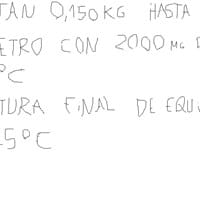 TAN 0,150KG HASTA
ETRO CON 2000 MG D
°C
TURA FINAL DE EQU
.5°C